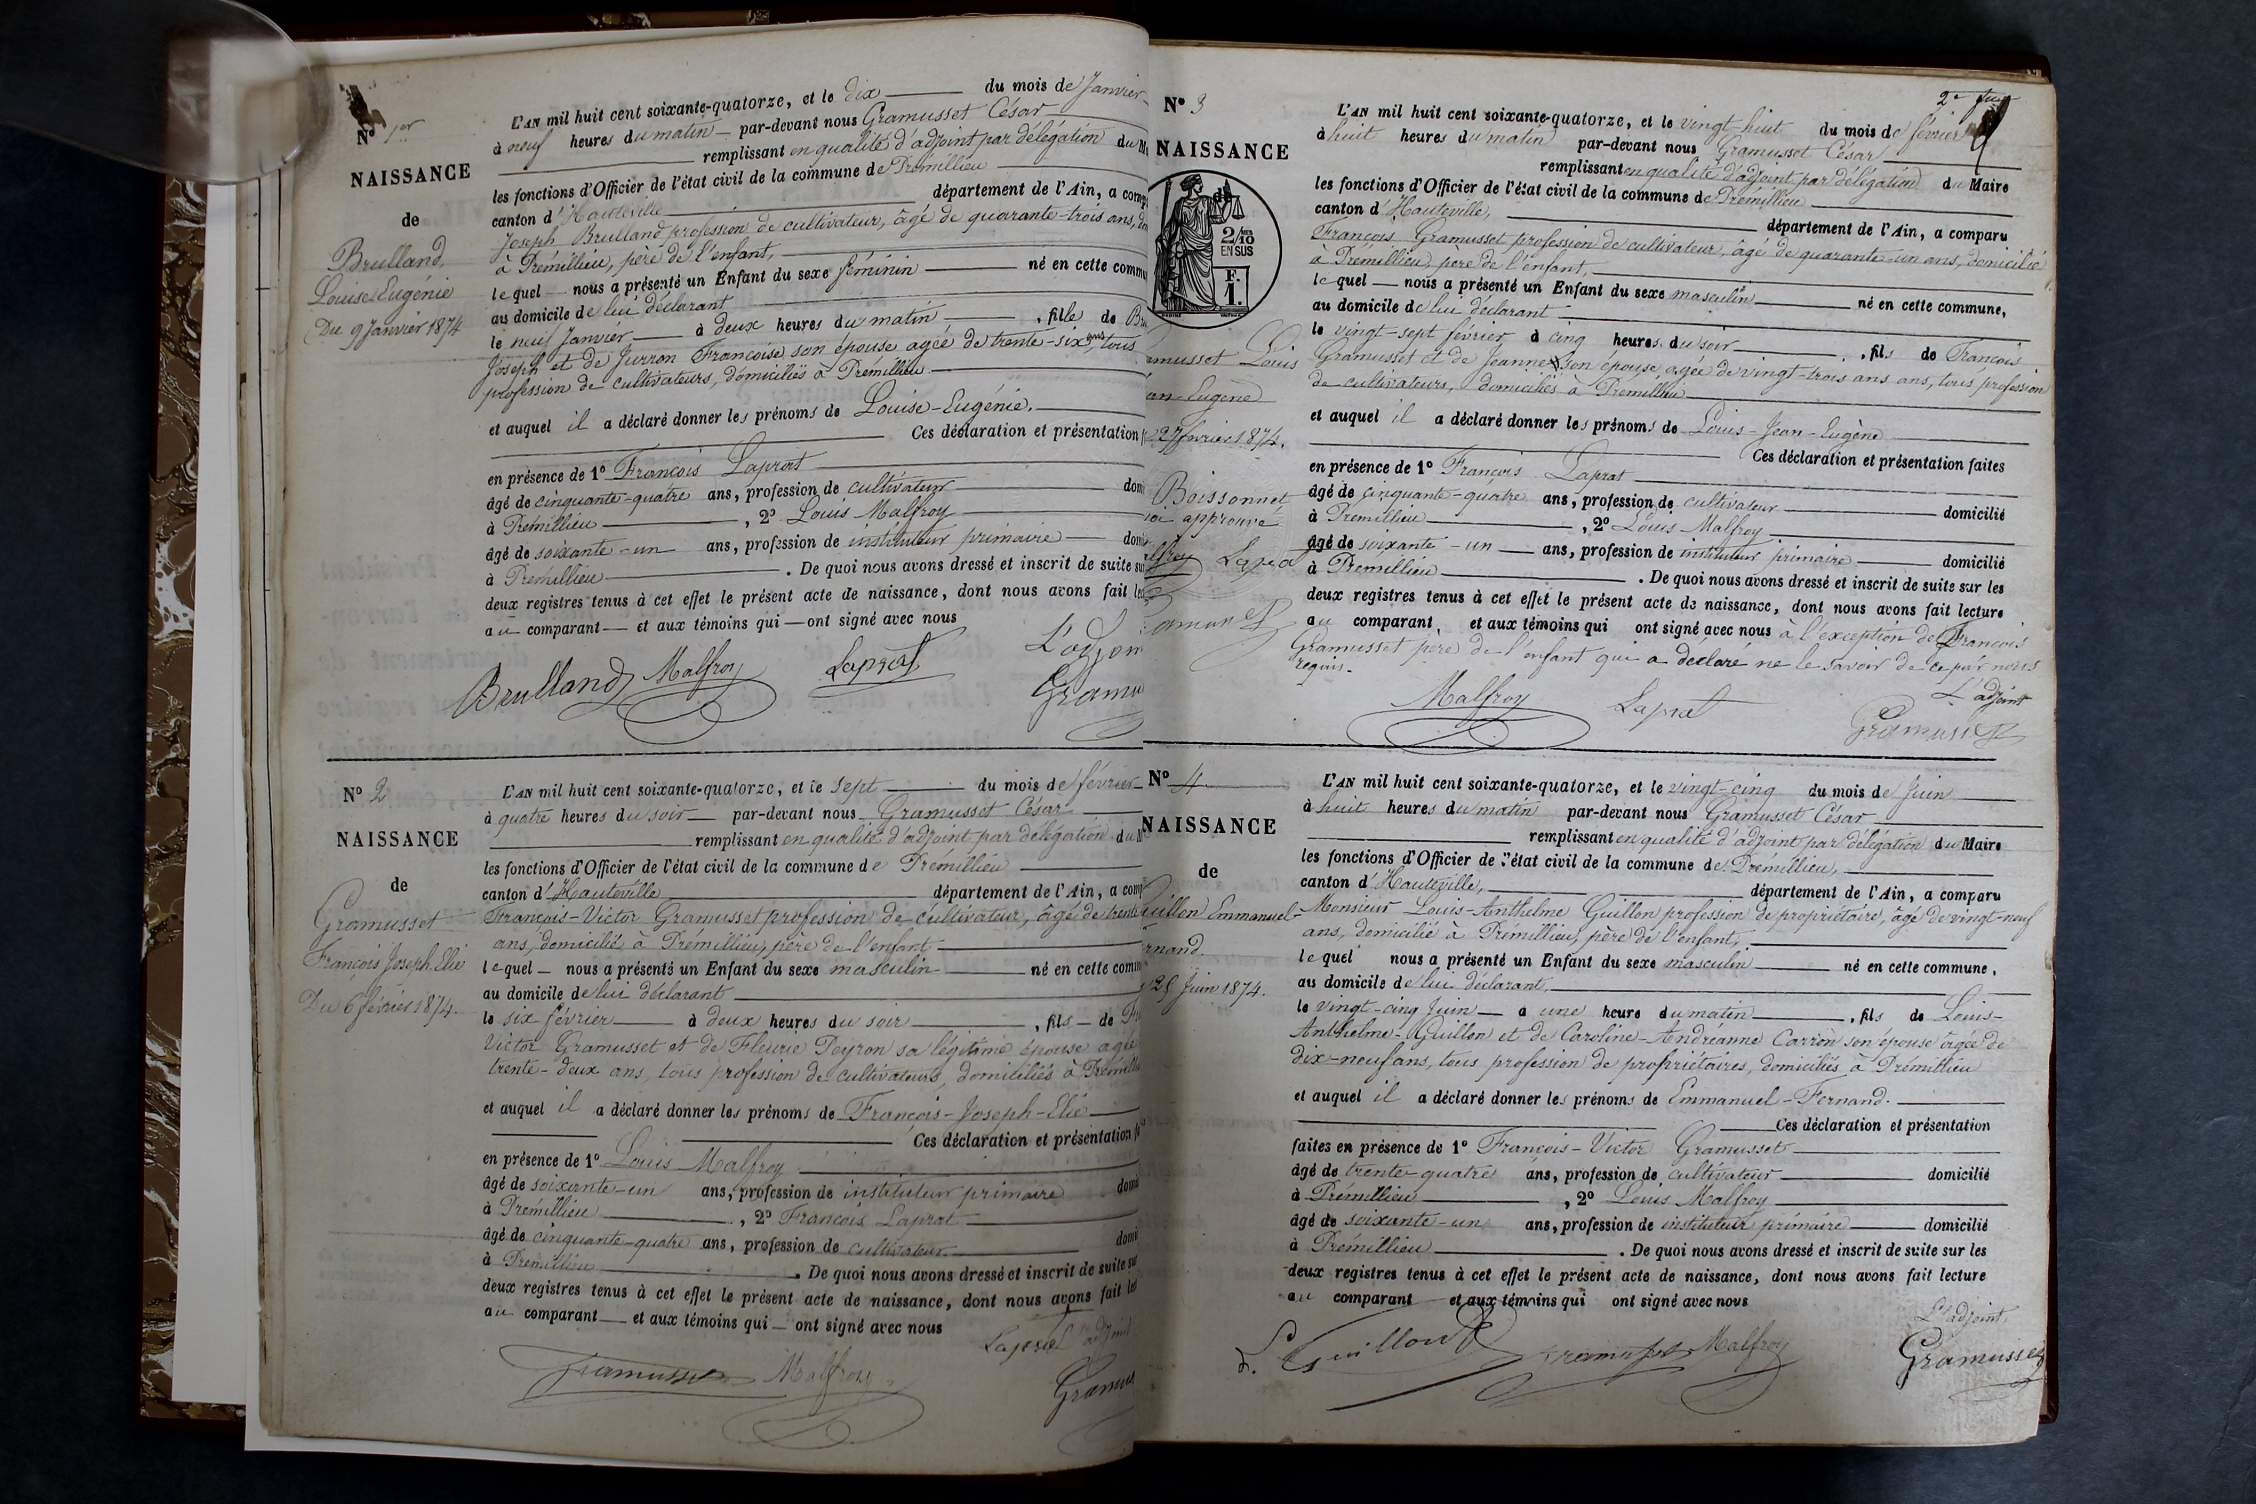 N° 1er
NAISSANCE
de
Brulland,
Louise Eugénie
Du 9 Janvier 1874
L'AN mil huit cent soixante-quatorze, et le dix du mois de Janvier
à neuf heures du matin par-devant nous Gramusset César
remplissant en qualité d'adjoint par délégation du
les fonctions d'Officier de l'état civil de la commune de Prémillieu
canton d'Hauteville département de l'Ain, a
Joseph Brulland profession de cultivateur, âgé de quarante-trois ans,
à Prémillieu, père de l'enfant,
lequel nous a présenté un Enfant du sexe féminin né en cette
au domicile de lui déclarant
le neuf Janvier à deux heures du matin, fille de
Joseph et de Jurron Françoise son épouse agée de trente-six ans, tous
profession de cultivateurs, domiciliés à Prémillieu
et auquel il a déclaré donner les prénoms de Louise-Eugénie.
Ces déclaration et présentation
en présence de 1° François Laprat
âgé de cinquante-quatre ans, profession de cultivateur
à Prémillieu, 2° Louis Malfroy
âgé de soixante-un ans, profession de instituteur primaire
à Prémillieu. De quoi nous avons dressé et inscrit de suite
deux registres tenus à cet effet le présent acte de naissance, dont nous avons fait
au comparant et aux témoins qui ont signé avec nous
Brulland Malfroy Laprat
N° 2
NAISSANCE
de
Gramusset
François Joseph Elie
Du 6 février 1874.
L'AN mil huit cent soixante-quatorze, et le sept du mois de février
à quatre heures du soir par-devant nous Gramusset César
remplissant en qualité d'adjoint par délégation du
les fonctions d'Officier de l'état civil de la commune de Prémillieu
canton d'Hauteville département de l'Ain, a
François-Victor Gramusset profession de cultivateur, âgé de trente
ans, domicilié à Prémillieu, père de l'enfant
lequel nous a présenté un Enfant du sexe masculin né en cette
au domicile de lui déclarant
le six février à deux heures du soir, fils de
Victor Gramusset et de Fleurie Peyron sa légitime épouse agée
trente-deux ans, tous profession de cultivateurs, domiciliés à
et auquel il a déclaré donner les prénoms de François-Joseph-Elie
Ces déclaration et présentation
en présence de 1° Louis Malfroy
âgé de soixante-un ans, profession de instituteur primaire
à Prémillieu, 2° François Laprat
âgé de cinquante-quatre ans, profession de cultivateur
à Prémillieu. De quoi nous avons dressé et inscrit de suite
deux registres tenus à cet effet le présent acte de naissance, dont nous avons fait
au comparant et aux témoins qui ont signé avec nous
Laprat
Gramusset Malfroy
2e
N° 3
NAISSANCE
de
2/10 EN SUS
F. 1.
Louis
Eugène
1874.
Boissonnet
approuvé
L'AN mil huit cent soixante-quatorze, et le vingt huit du mois de février
à huit heures du matin par-devant nous Gramusset César
remplissant en qualité d'adjoint par délégation du Maire
les fonctions d'Officier de l'état civil de la commune de Prémillieu
canton d'Hauteville, département de l'Ain, a comparu
François Gramusset profession de cultivateur, âgé de quarante-un ans, domicilié
à Prémillieu, père de l'enfant,
lequel nous a présenté un Enfant du sexe masculin né en cette commune,
au domicile de lui déclarant
le vingt-sept février à cinq heures du soir, fils de François
Gramusset et de Jeanne son épouse agée de vingt-trois ans ans, tous profession
de cultivateurs, domiciliés à Prémillieu
et auquel il a déclaré donner les prénoms de Louis-Jean-Eugène
Ces déclaration et présentation faites
en présence de 1° François Laprat
âgé de cinquante-quatre ans, profession de cultivateur domicilié
à Prémillieu, 2° Louis Malfroy
âgé de soixante-un ans, profession de instituteur primaire domicilié
à Prémillieu. De quoi nous avons dressé et inscrit de suite sur les
deux registres tenus à cet effet le présent acte de naissance, dont nous avons fait lecture
au comparant et aux témoins qui ont signé avec nous à l'exception de François
Gramusset père de l'enfant qui a déclaré ne le savoir de ce par nous
requis.
L'adjoint
Malfroy Laprat Gramusset
N° 4
NAISSANCE
de
Guillon Emmanuel-
25 Juin 1874.
L'AN mil huit cent soixante-quatorze, et le vingt-cinq du mois de Juin
à huit heures du matin par-devant nous Gramusset César
remplissant en qualité d'adjoint par délégation du Maire
les fonctions d'Officier de l'état civil de la commune de Prémillieu,
canton d'Hauteville, département de l'Ain, a comparu
Monsieur Louis-Anthelme Guillon profession de propriétaire, âgé de vingt-neuf
ans, domicilié à Prémillieu, père de l'enfant,
lequel nous a présenté un Enfant du sexe masculin né en cette commune,
au domicile de lui déclarant
le vingt-cinq Juin à une heure du matin, fils de Louis-
Anthelme-Guillon et de Caroline-Andréanne Carron son épouse âgée de
dix-neuf ans, tous profession de propriétaires, domiciliés à Prémillieu
et auquel il a déclaré donner les prénoms de Emmanuel-Fernand.
Ces déclaration et présentation
faites en présence de 1° François-Victor Gramusset
âgé de trente-quatre ans, profession de cultivateur domicilié
à Prémillieu, 2° Louis Malfroy
âgé de soixante-un ans, profession de instituteur primaire domicilié
à Prémillieu. De quoi nous avons dressé et inscrit de suite sur les
deux registres tenus à cet effet le présent acte de naissance, dont nous avons fait lecture
au comparant et aux témoins qui ont signé avec nous
L'adjoint,
L. Guillon Gramusset Malfroy Gramusset